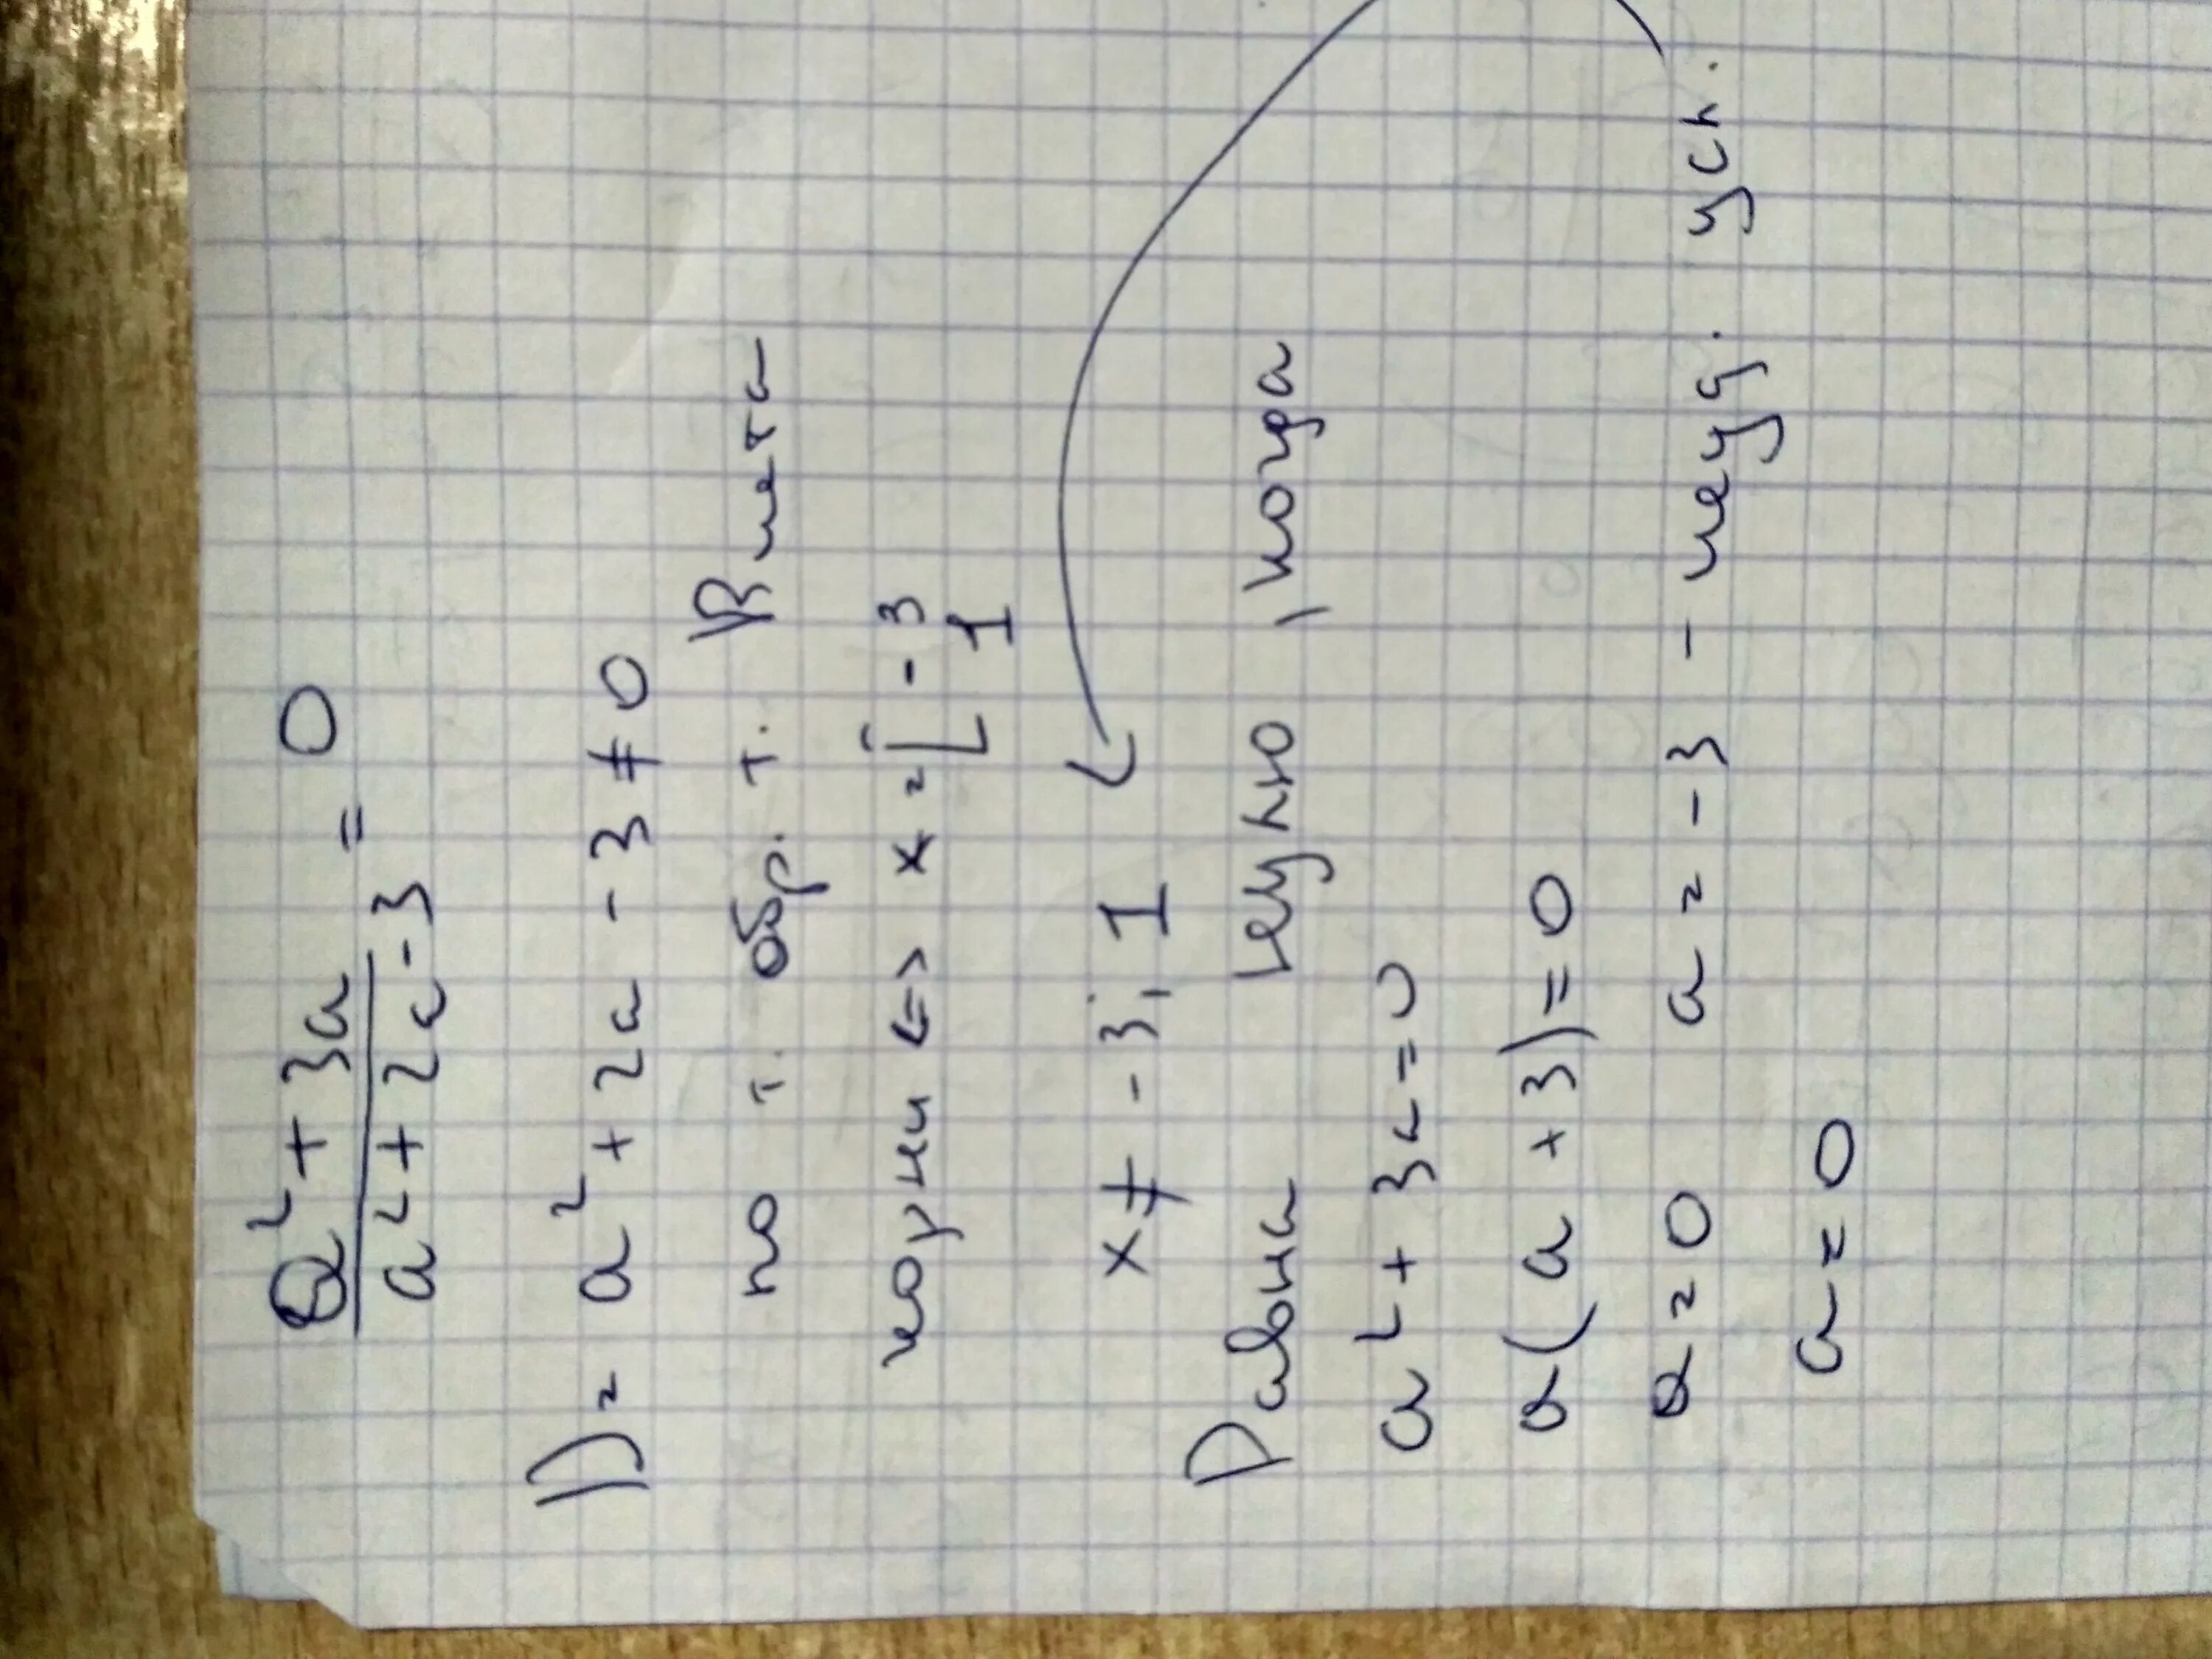 a² + 3a
a² + 2a - 3 = 0
D = a² + 2a - 3 ≠ 0
по т. обр. т. Виета
корни <=> x = [ -3
1
x ≠ -3; 1
Равна нулю, когда
a² + 3a = 0
a(a + 3) = 0
a = 0 a = -3 - неуд. усл.
a = 0